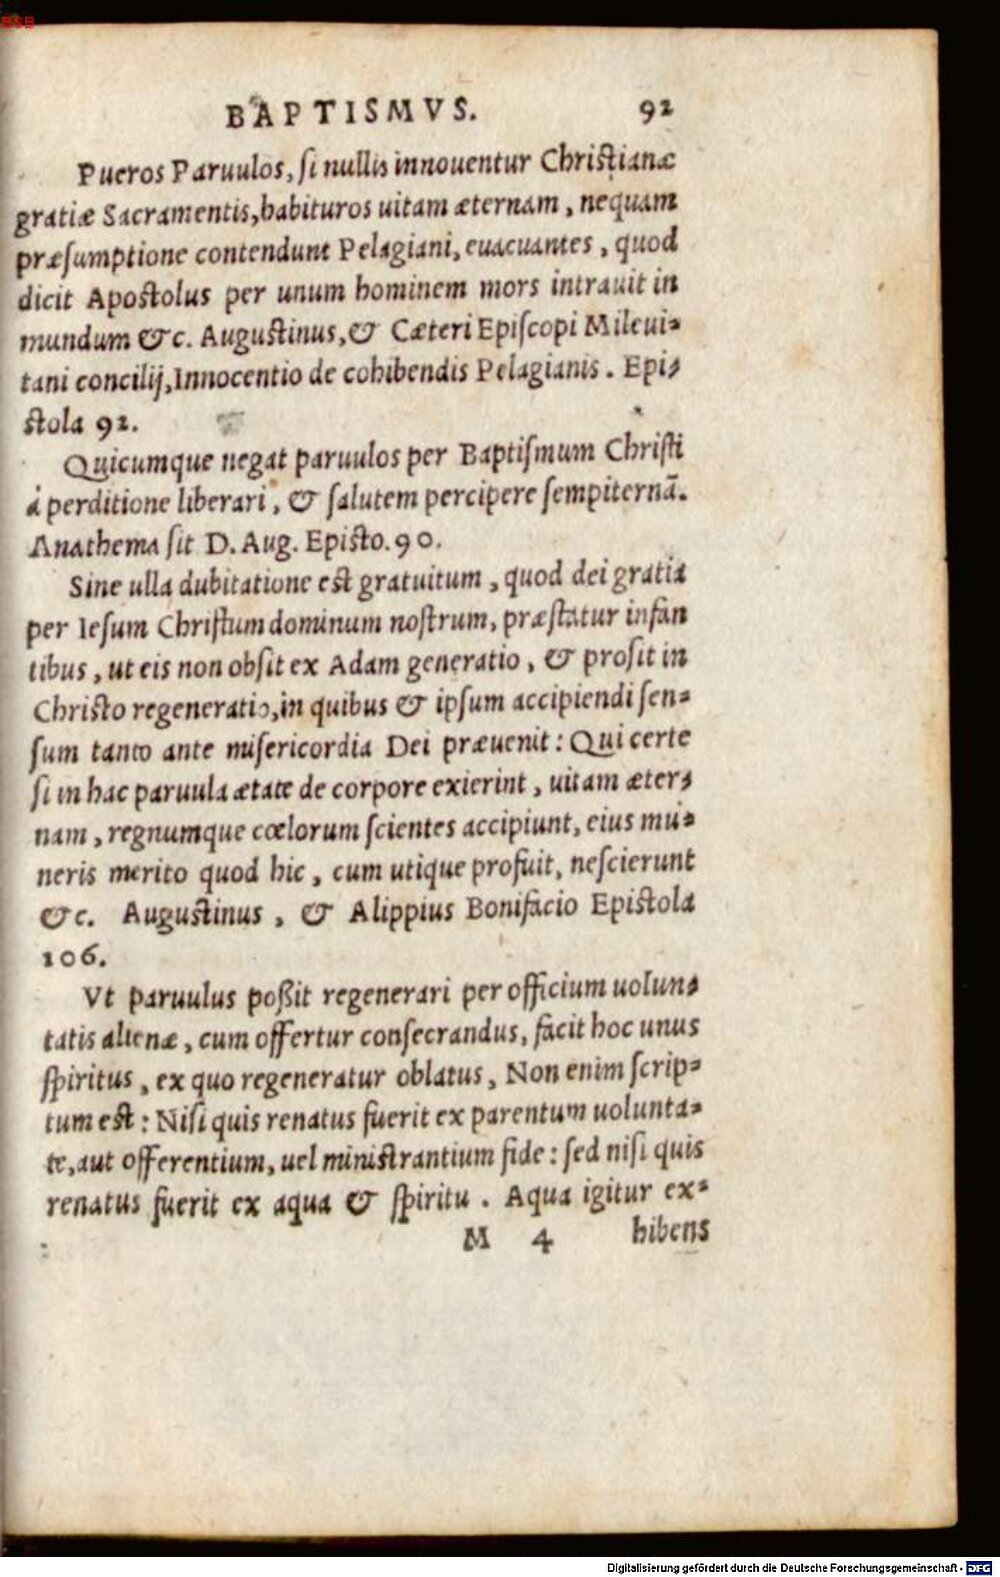 BSB
BAPTISMVS. 92
Pueros Paruulos, si nullis innouentur Christianæ
gratiæ Sacramentis, habituros uitam æternam, nequam
præsumptione contendunt Pelagiani, euacuantes, quod
dicit Apostolus per unum hominem mors intrauit in
mundum &c. Augustinus, & Cæteri Episcopi Mileui-
tani concilij, Innocentio de cohibendis Pelagianis. Epi-
stola 92.
Quicumque negat paruulos per Baptismum Christi
à perditione liberari, & salutem percipere sempiternã.
Anathema sit D. Aug. Episto. 90.
Sine ulla dubitatione est gratuitum, quod dei gratia
per Iesum Christum dominum nostrum, præstatur infan
tibus, ut eis non obsit ex Adam generatio, & prosit in
Christo regeneratio, in quibus & ipsum accipiendi sen-
sum tanto ante misericordia Dei præuenit: Qui certe
si in hac paruula ætate de corpore exierint, uitam æter-
nam, regnumque cœlorum scientes accipiunt, eius mu-
neris merito quod hic, cum utique profuit, nescierunt
&c. Augustinus, & Alippius Bonifacio Epistola
106.
Vt paruulus poßit regenerari per officium uolun-
tatis alienæ, cum offertur consecrandus, facit hoc unus
spiritus, ex quo regeneratur oblatus, Non enim scrip-
tum est: Nisi quis renatus fuerit ex parentum uolunta-
te, aut offerentium, uel ministrantium fide: sed nisi quis
renatus fuerit ex aqua & spiritu. Aqua igitur ex-
M 4 hibens
Digitalisierung gefördert durch die Deutsche Forschungsgemeinschaft - DFG